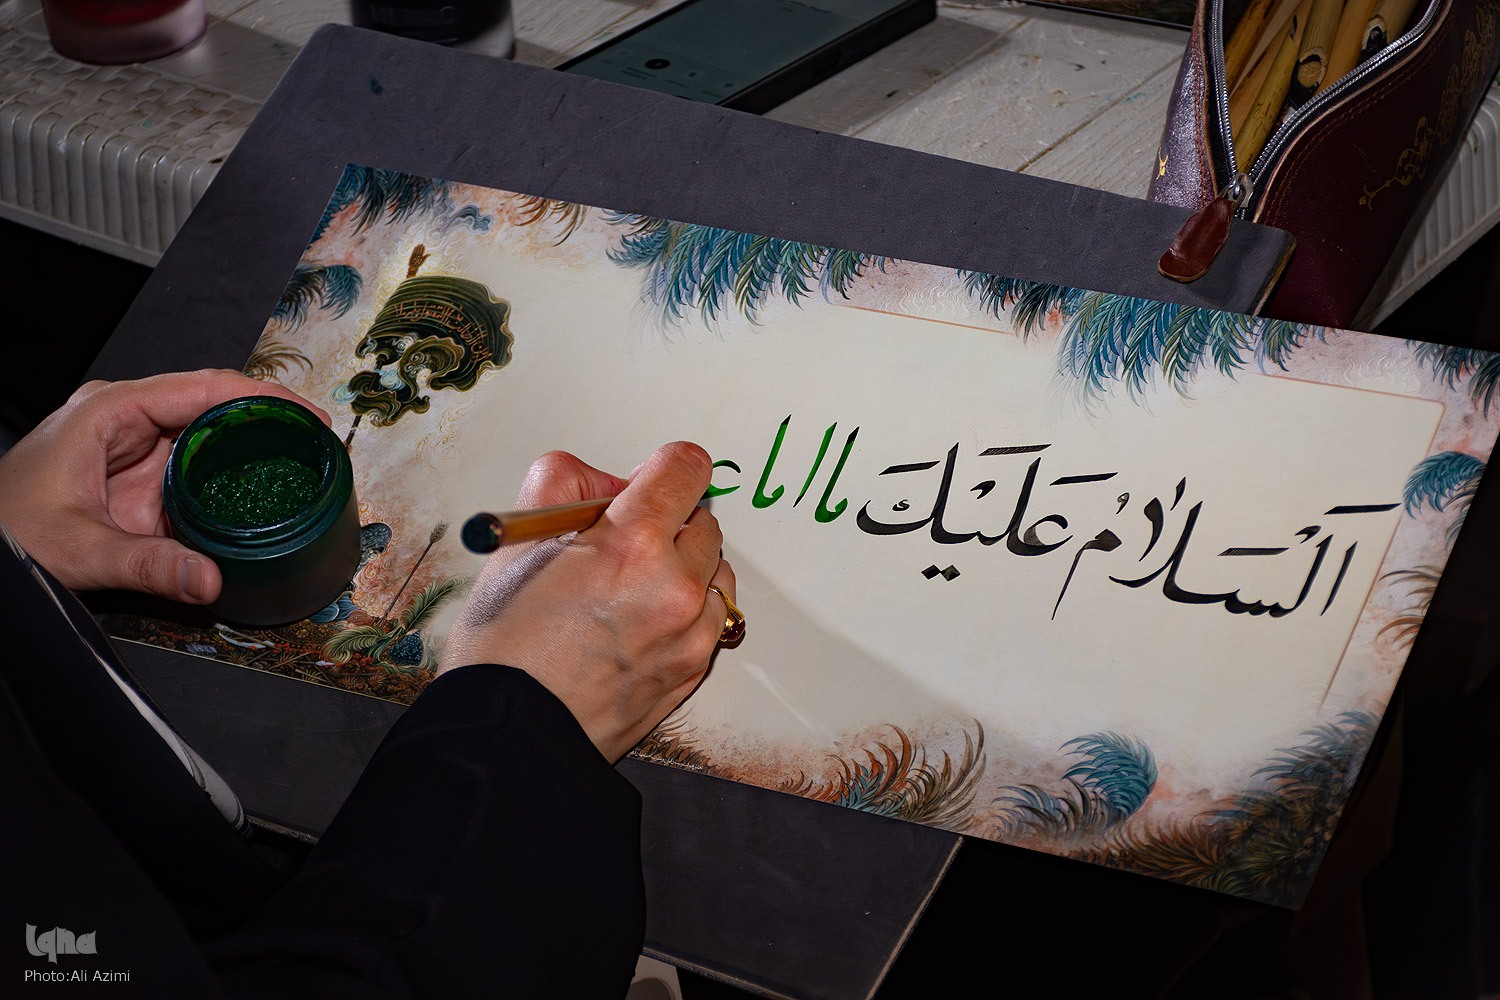 اَلْسَلامُ عَلَیْکَ یا ابا ع
Iqna
Photo:Ali Azimi